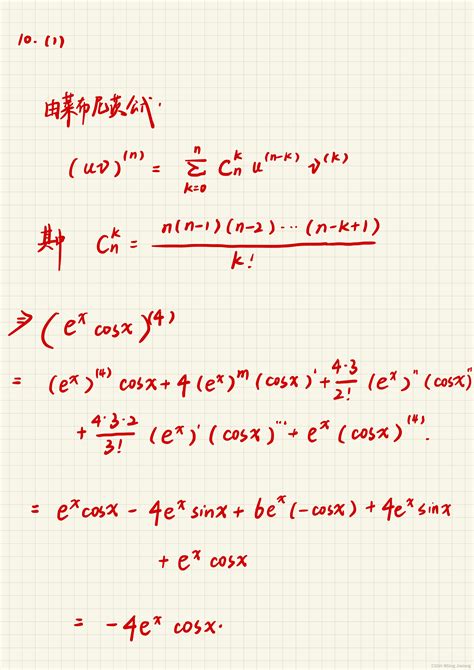 10. (1)
由莱布尼茨公式.
(uv)^(n) = Σ_{k=0}^{n} C_n^k u^(n-k) v^(k)
其中 C_n^k = n(n-1)(n-2)···(n-k+1) / k!
⇒ (e^x cosx)^(4)
= (e^x)^(4) cosx + 4(e^x)''' (cosx)' + 4·3/2! (e^x)'' (cosx)''
+ 4·3·2/3! (e^x)' (cosx)''' + e^x (cosx)^(4).
= e^x cosx - 4e^x sinx + 6e^x (-cosx) + 4e^x sinx
+ e^x cosx
= -4e^x cosx.